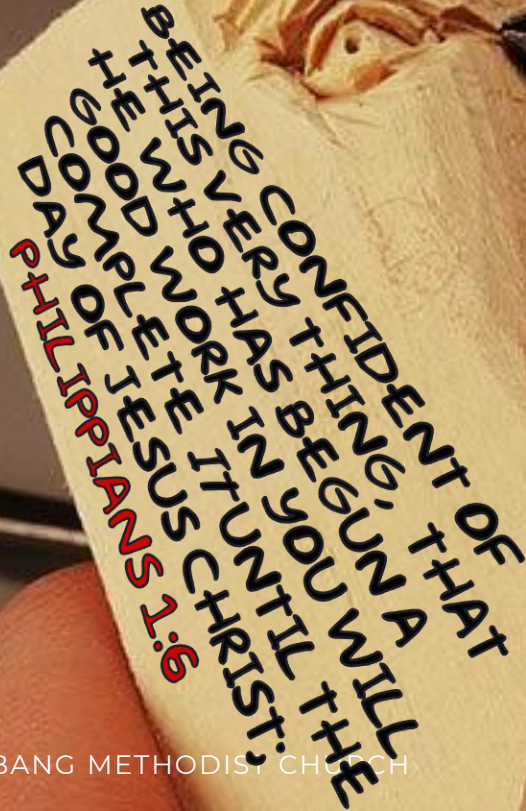 BEING CONFIDENT OF
THIS VERY THING, THAT
HE WHO HAS BEGUN A
GOOD WORK IN YOU WILL
COMPLETE IT UNTIL THE
DAY OF JESUS CHRIST;
PHILIPPIANS 1:6
BANG METHODIST CHURCH